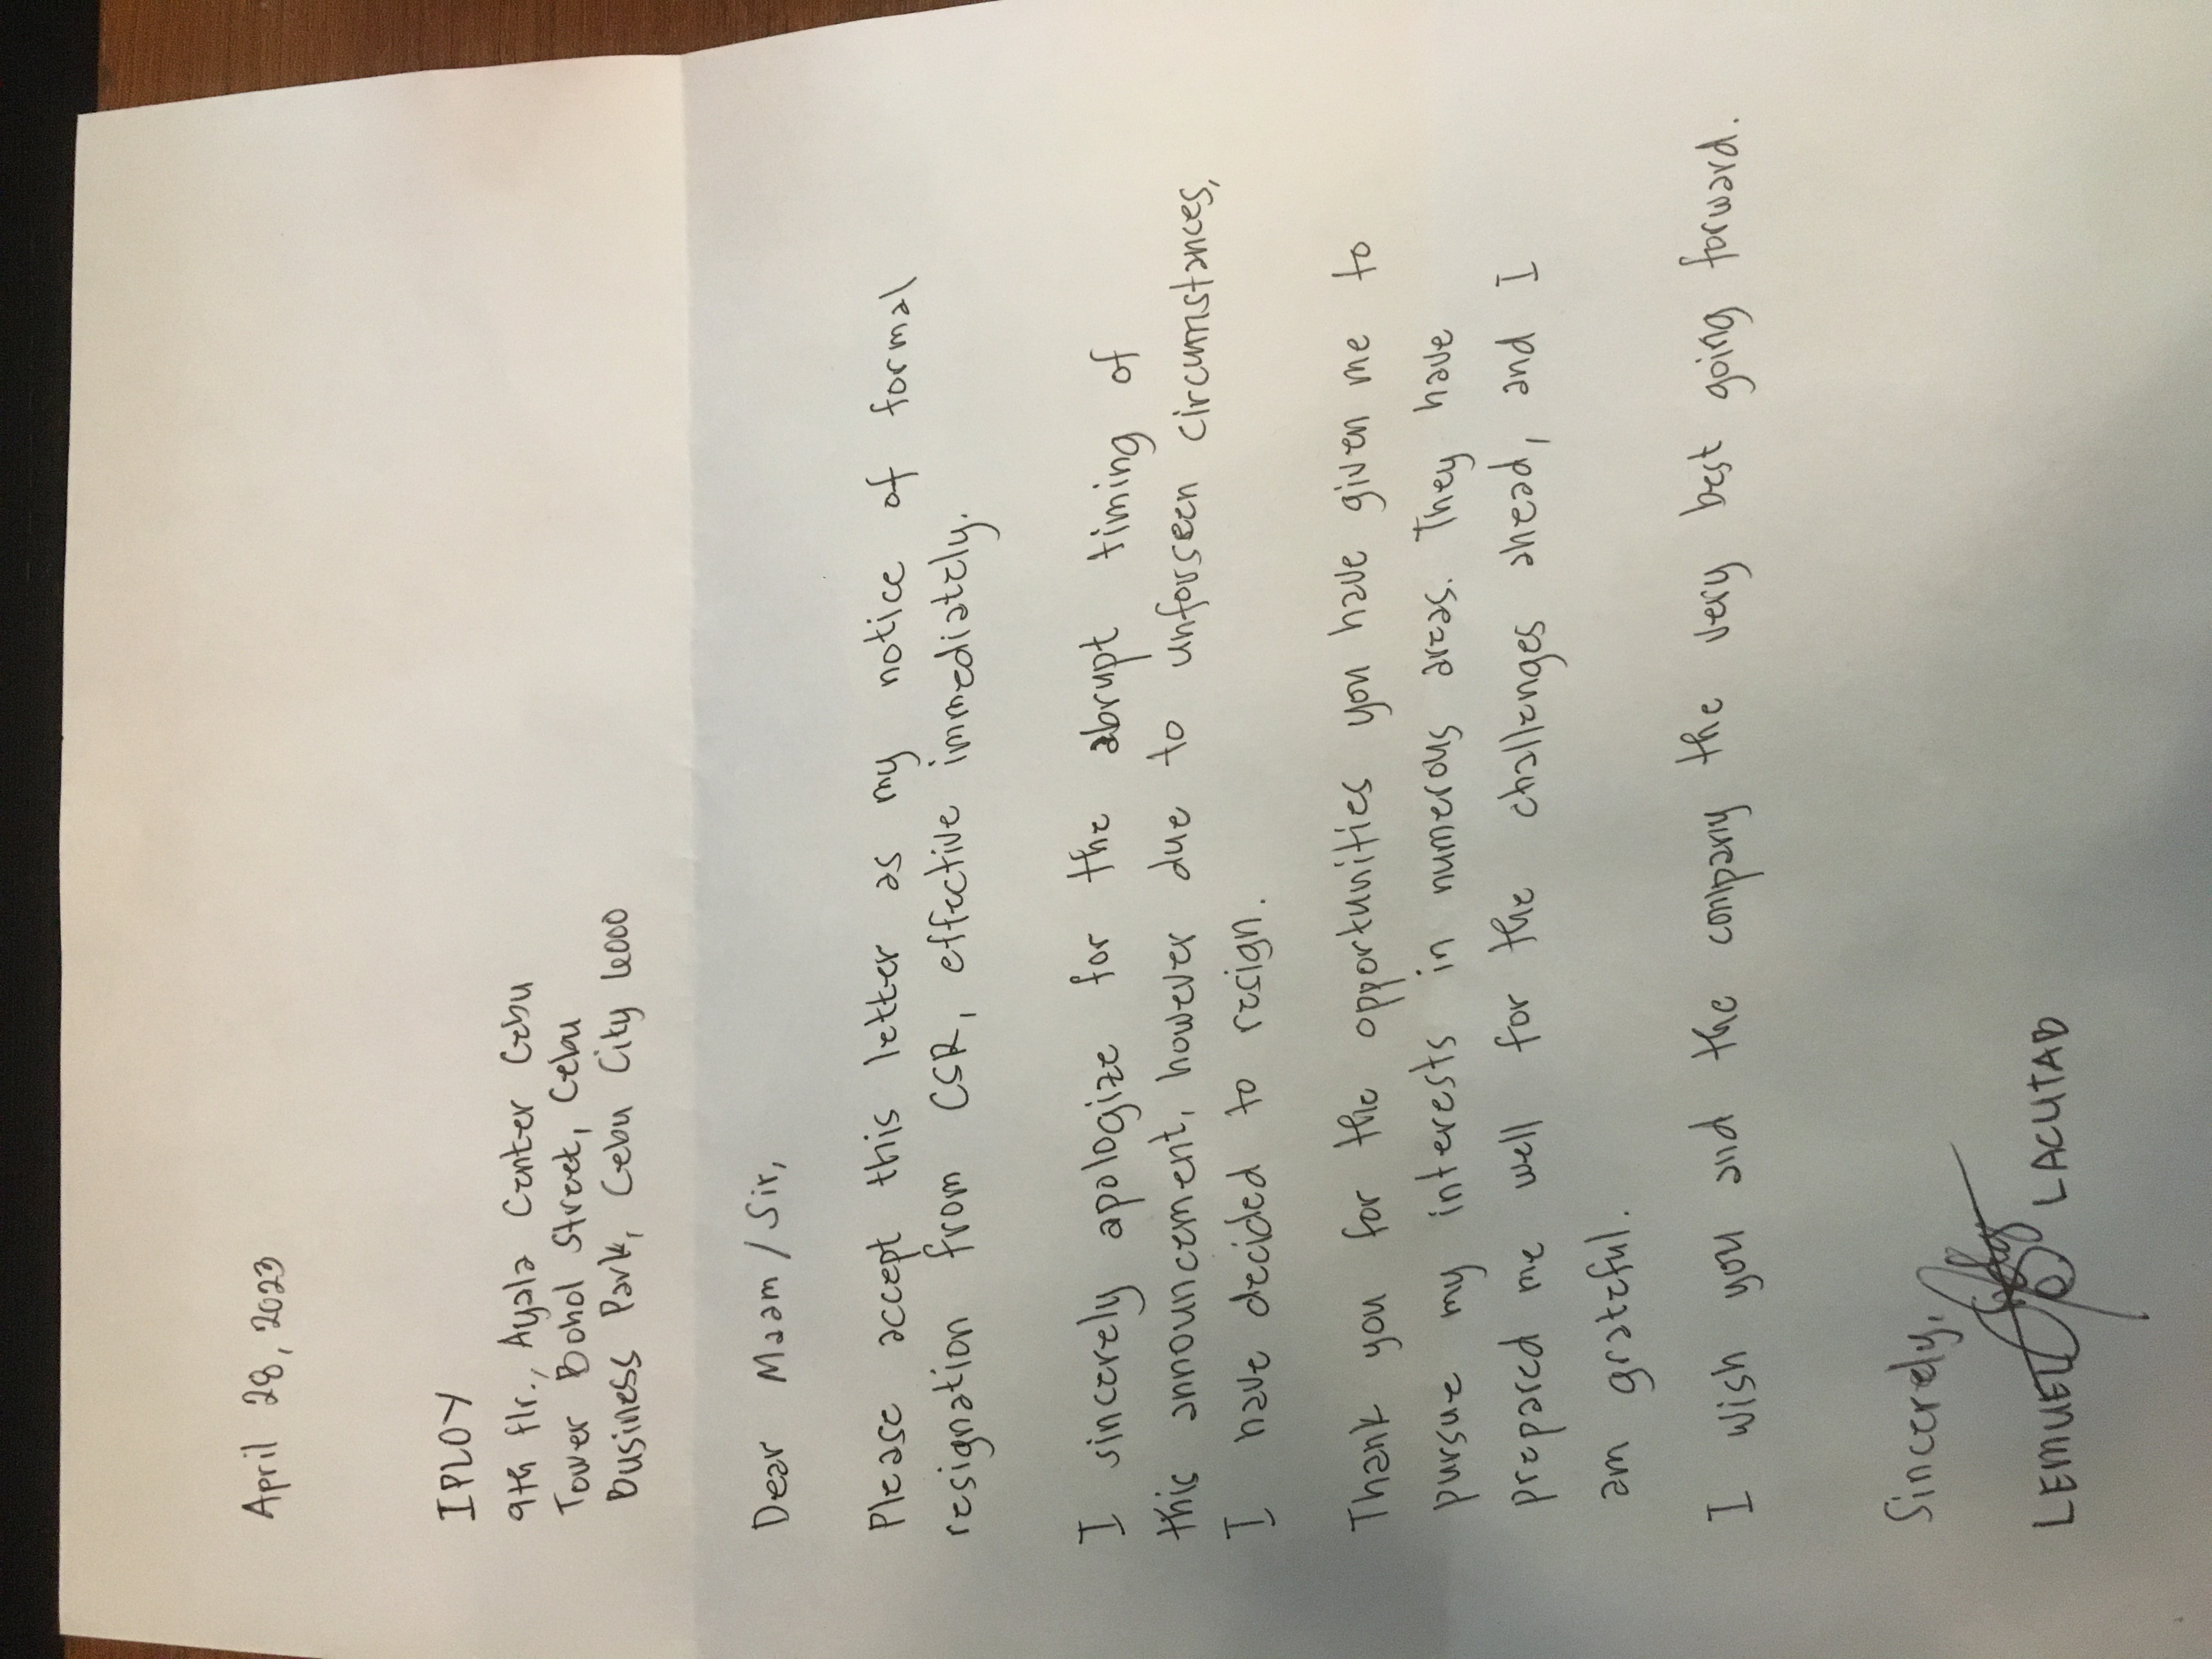 April 28, 2023
IPLOY
9th flr., Ayala Center Cebu
Tower Bohol Street, Cebu
Business Park, Cebu City 6000
Dear Maam / Sir,
Please accept this letter as my notice of formal
resignation from CSR, effective immediately.
I sincerely apologize for the abrupt timing of
this announcement, however due to unforseen circumstances,
I have decided to resign.
Thank you for the opportunities you have given me to
pursue my interests in numerous areas. They have
prepared me well for the challenges ahead, and I
am grateful.
I wish you and the company the very best going forward.
Sincerely,
LEMUEL LACUTAB